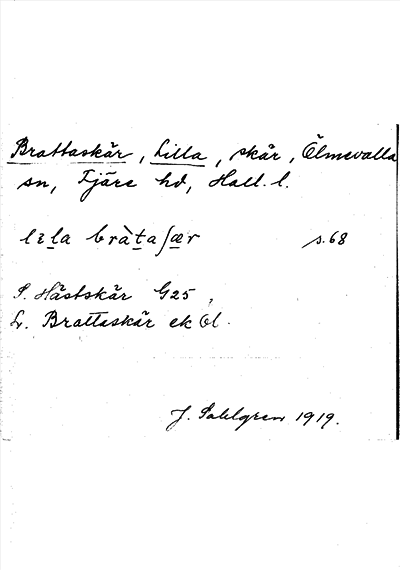 Brattaskär, Lilla, skär, Ölmevalla
sn, Fjäre hd, Hall. l.
lɩla bràtaʃær s. 68
S. Hästskär G25,
L. Brattaskär ek Ol.
J. Sahlgren 1919.